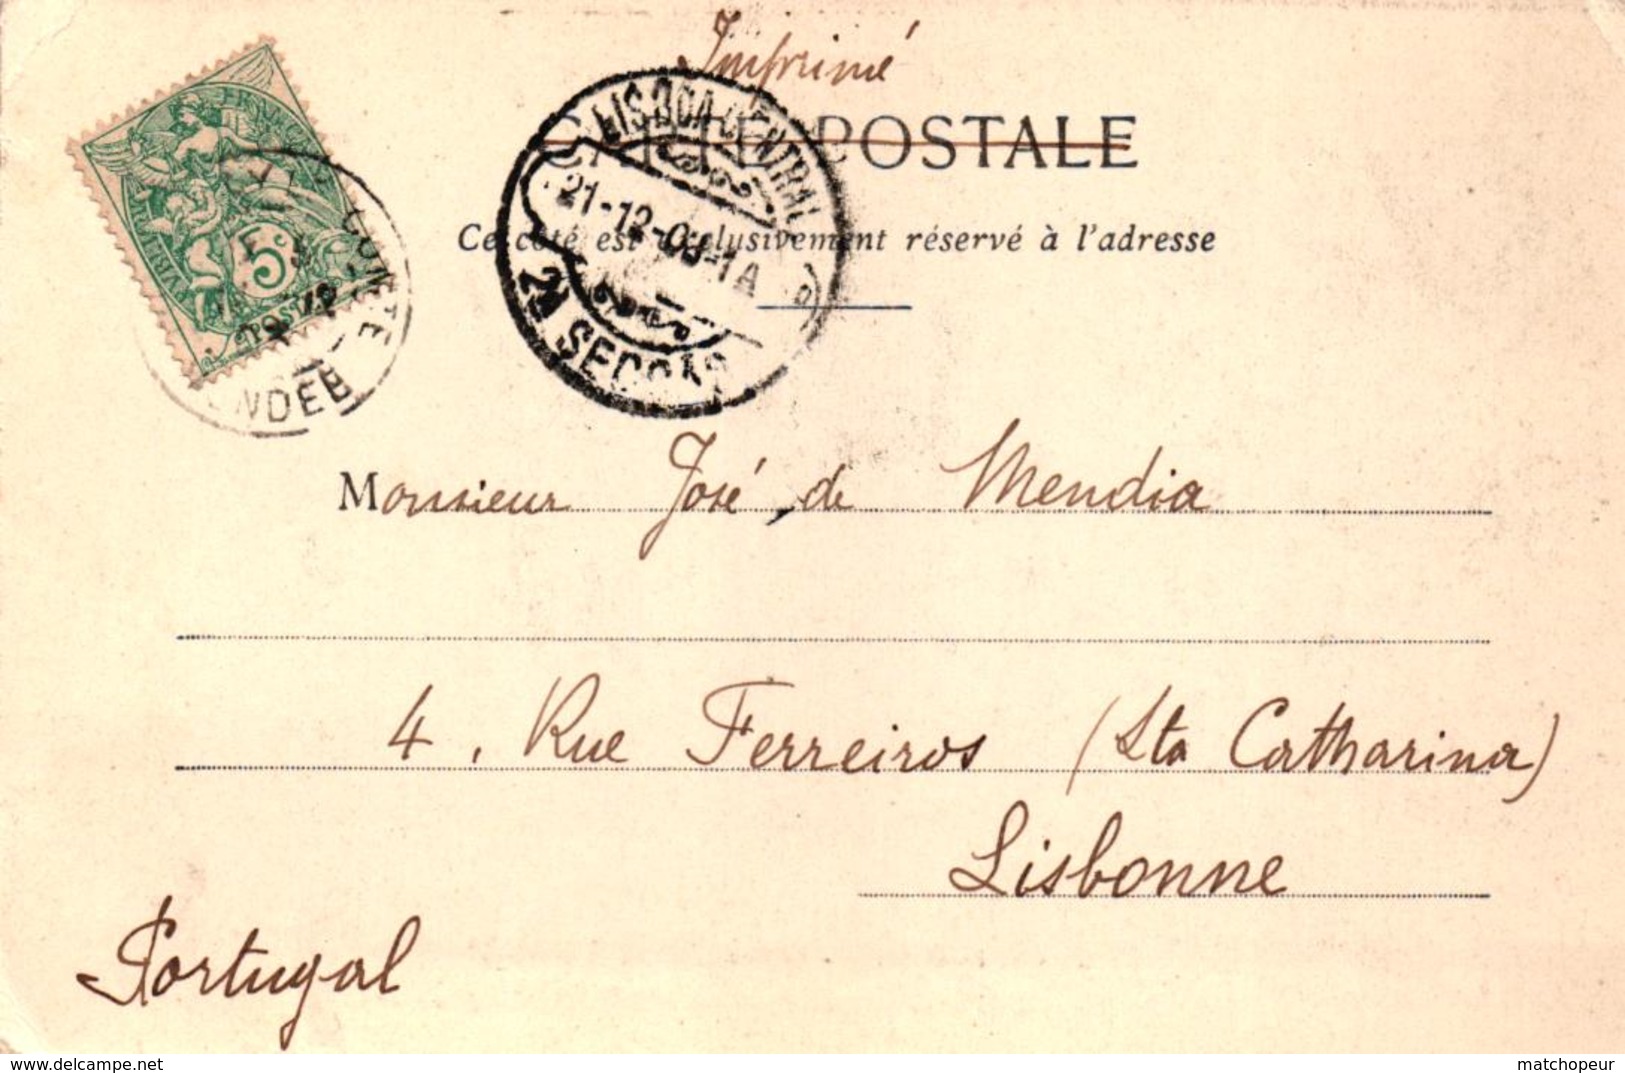 Imprimé
CARTE POSTALE
Ce côté est exclusivement réservé à l'adresse
LISBOA CENTRAL
21-12-03-1A
2ª SECÇÃO
5c
POSTES
COMTE
Monsieur José de Mendia
4, Rue Ferreiros (Sta Catharina)
Lisbonne
Portugal
https://www.delcampe.net
matchopeur